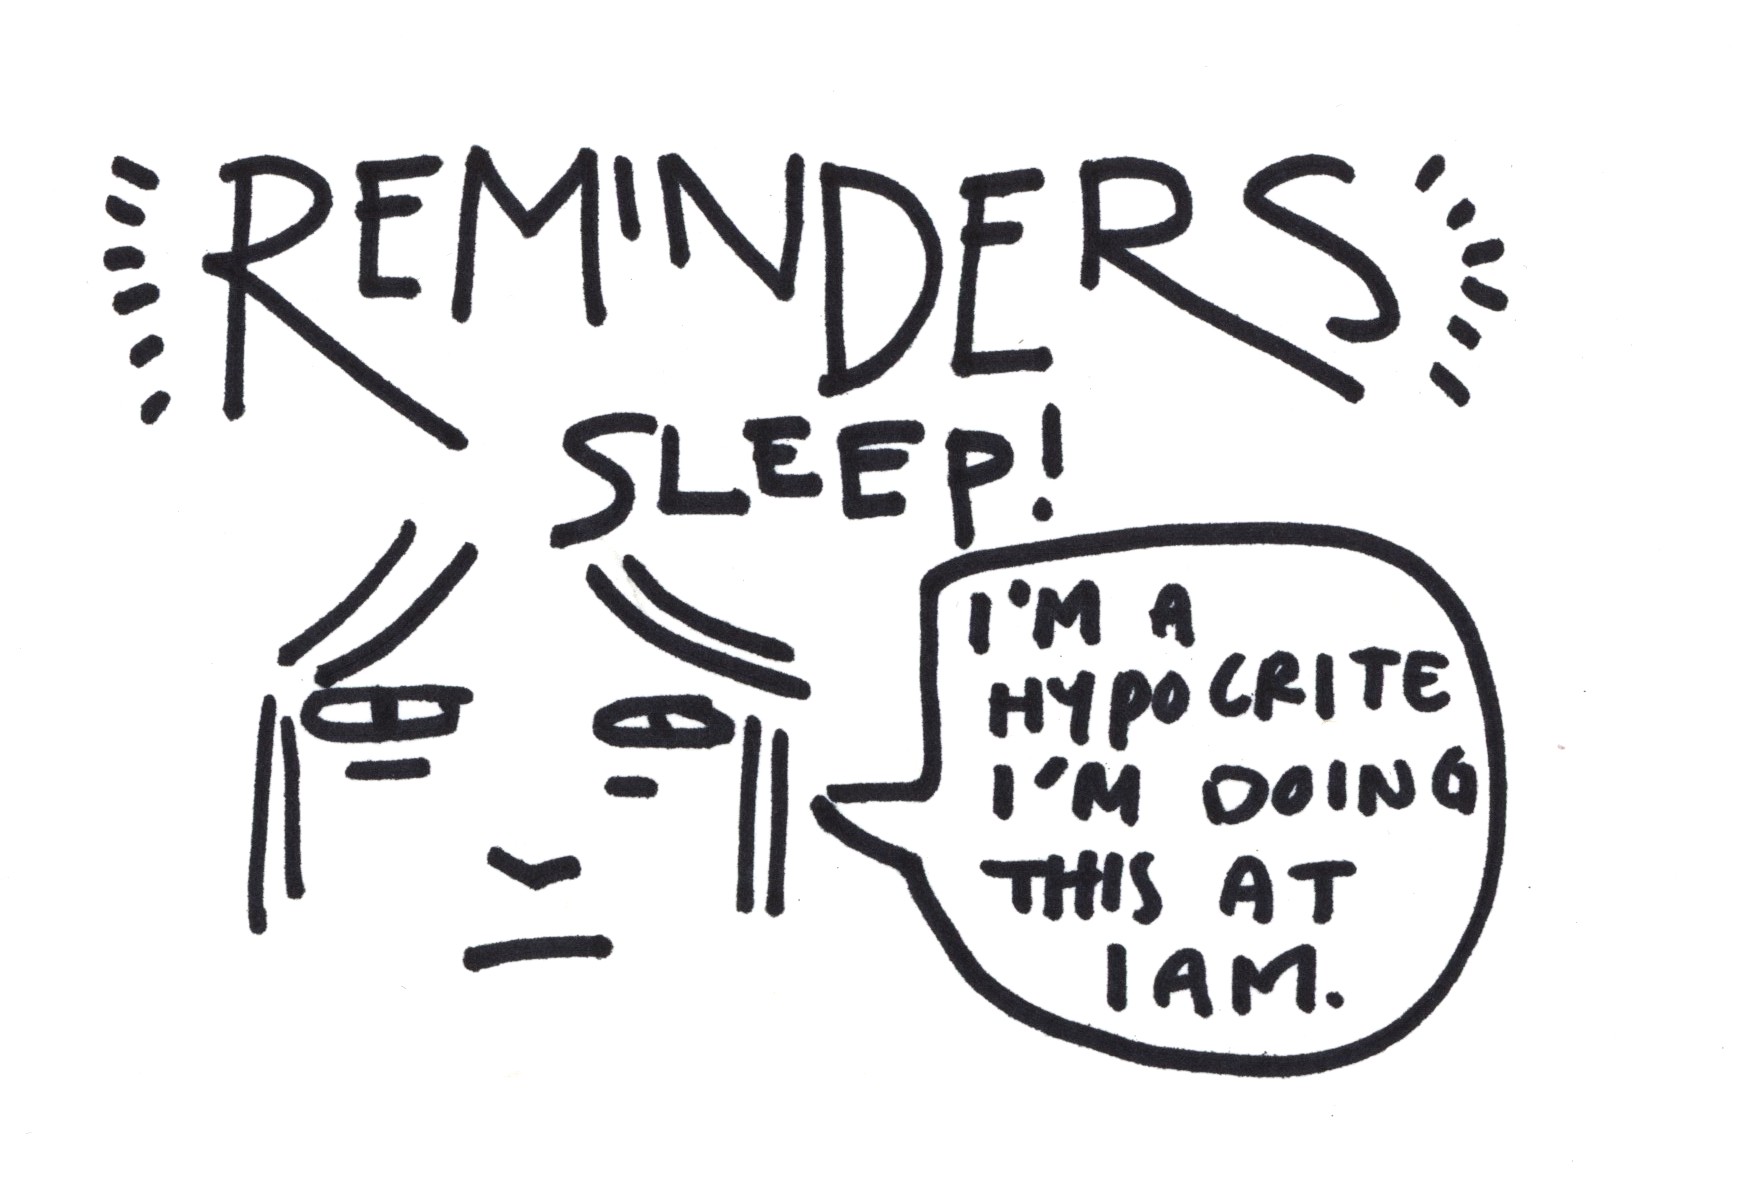 REMINDERS
SLEEP!
I'M A
HYPOCRITE
I'M DOING
THIS AT
1 AM.